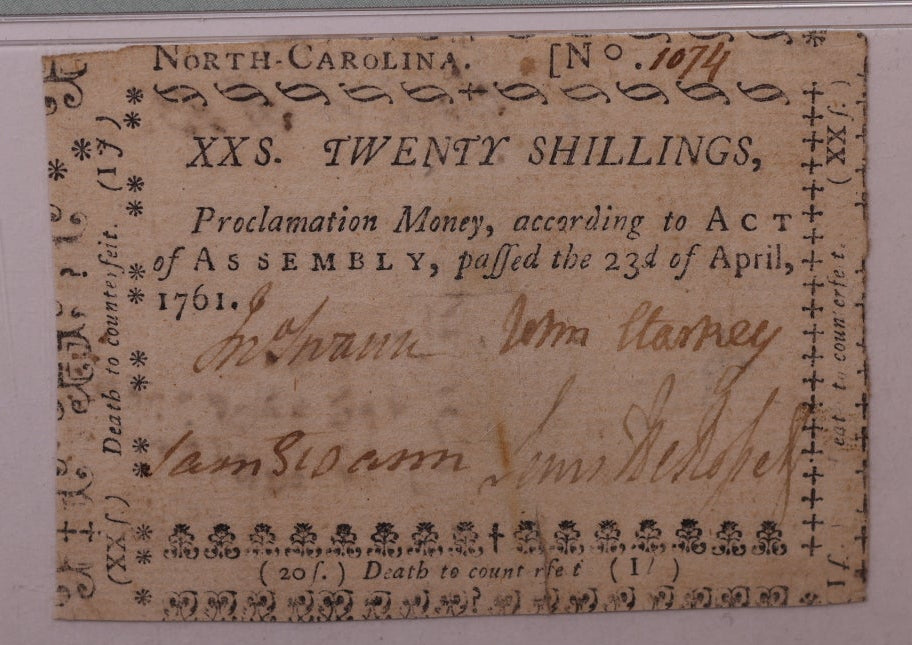 NORTH-CAROLINA. [Nº. 1074
XXS. TWENTY SHILLINGS,
Proclamation Money, according to ACT
of ASSEMBLY, paſſed the 23d of April,
1761.
Jnº Swann John Starkey
Sam Swann Lewis DeRosset
(20ſ.) Death to count rfe t (I/ )
(XXſ) Death to counterfeit. (IJ)
eat to counterfeit. (XXſ.)